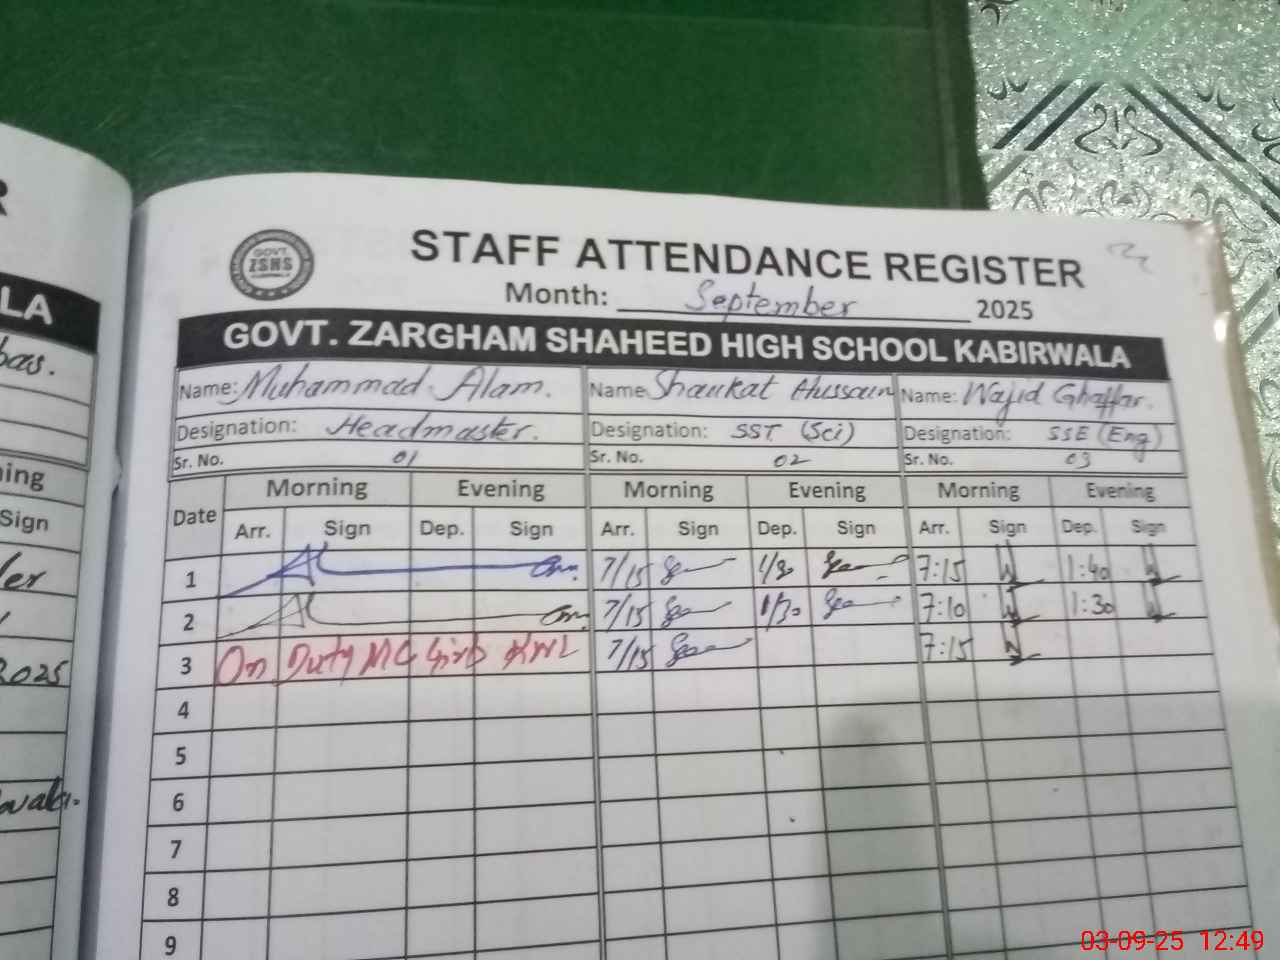 R
STAFF ATTENDANCE REGISTER
GOVT. ZSHS
Month: September 2025
LA
GOVT. ZARGHAM SHAHEED HIGH SCHOOL KABIRWALA
bas.
Name: Muhammad Alam. Name Shaukat Hussain Name: Wajid Ghaffar.
Designation: Headmaster. Designation: SST (Sci) Designation: SSE (Eng)
Sr. No. 01 Sr. No. 02 Sr. No. 03
ning
Date Morning Evening Morning Evening Morning Evening
Sign
Arr. Sign Dep. Sign Arr. Sign Dep. Sign Arr. Sign Dep. Sign
1 7/15 1/30 7:15 1:40
2 7/15 1/30 7:10 1:30
3 On Duty MC Girls KWL 7/15 7:15
2025
4
5
6
7
8
9
03-09-25 12:49